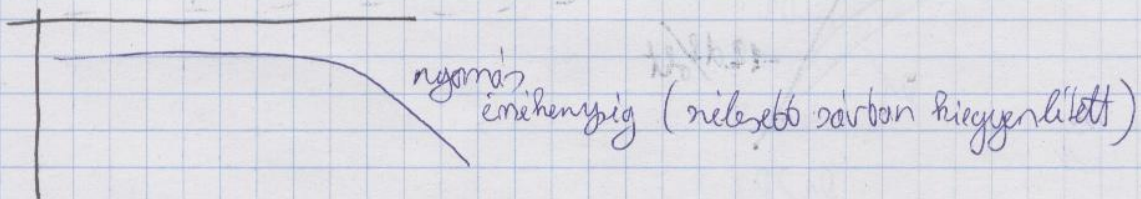 nyomás
érzékenység (szélesebb sávban kiegyenlített)